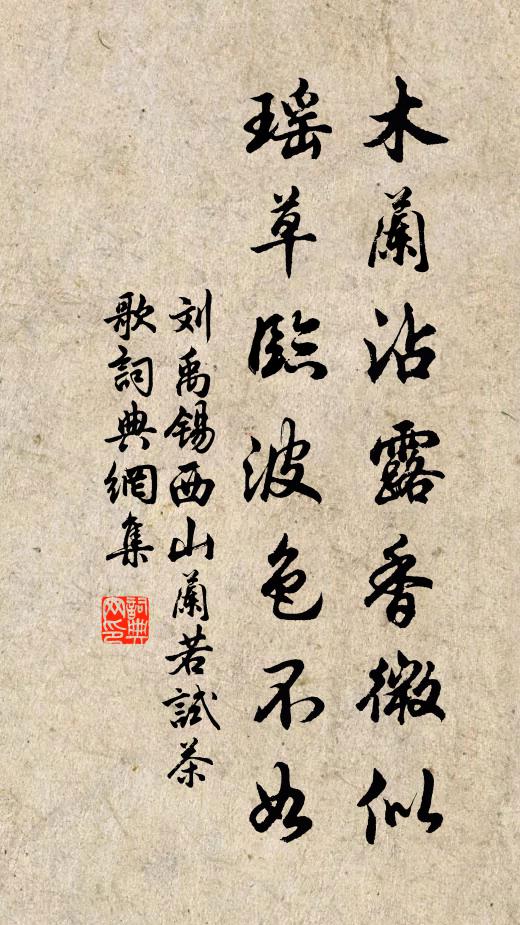 木蘭沾露香微似
瑶草臨波色不如
刘禹锡西山蘭若試茶
歌詞典網集
詞典网印